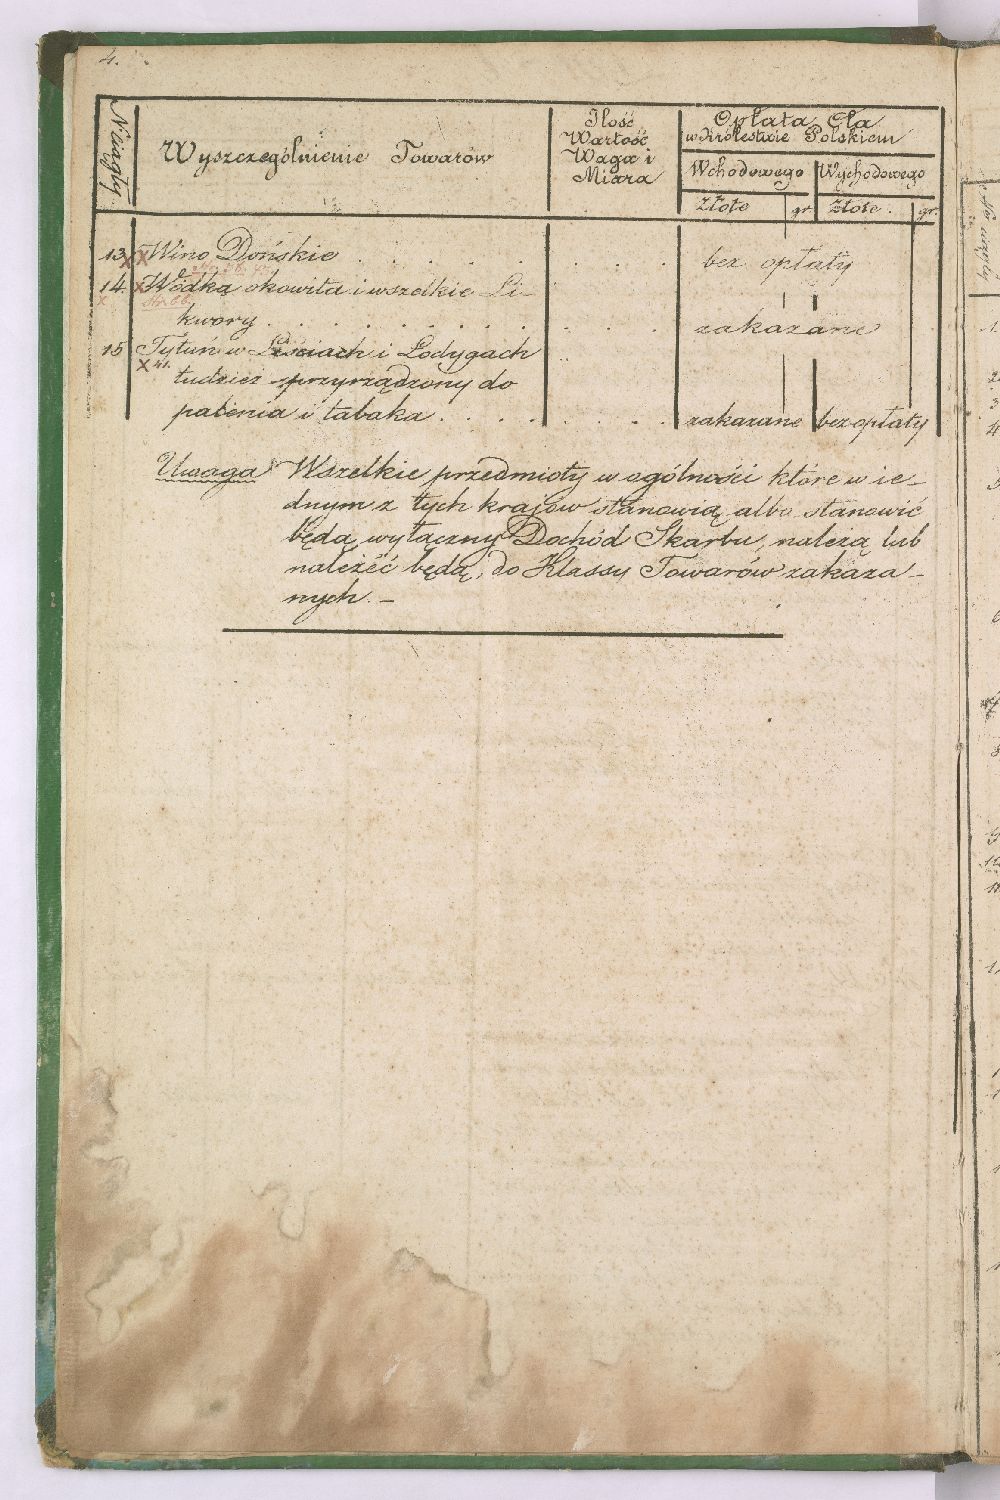 4.
N: ciągły
Wyszczególnienie Towarów
Ilość
Wartość
Waga i
Miara
Opłata Cła
w Królestwie Polskiem
Wchodowego
Wychodowego
Złote gr. Złote. gr.
13 Wino Dońskie . . . . . . . . . bez opłaty
14. Wódka okowita i wszelkie Li-
kwory . . . . . . . . . . . . zakazane
15 Tytuń w Liściach i Łodygach
41.
tudzież przyrządzony do
palenia i tabaka . . . . . . . . zakazane bez opłaty
Uwaga Wszelkie przedmioty w ogólności które w ie-
dnym z tych krajów stanowią albo stanowić
będą wyłączny Dochód Skarbu, należą lub
należéć będą, do Klassy Towarów zakaza-
nych. -